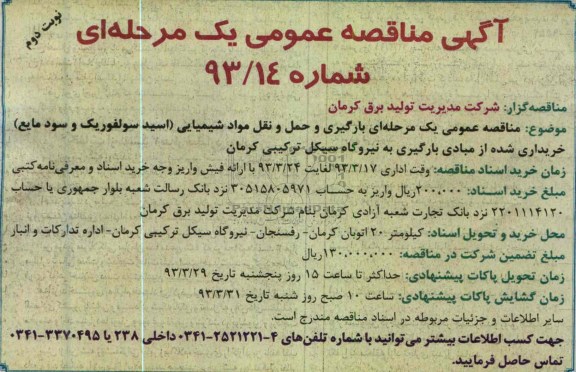 نوبت دوم
آگهی مناقصه عمومی یک مرحله‌ای
شماره ۹۳/۱٤
مناقصه‌گزار: شرکت مدیریت تولید برق کرمان
موضوع: مناقصه عمومی یک مرحله‌ای بارگیری و حمل و نقل مواد شیمیایی (اسید سولفوریک و سود مایع)
خریداری شده از مبادی بارگیری به نیروگاه سیکل ترکیبی کرمان
زمان خرید اسناد مناقصه: وقت اداری ۹۳/۳/۱۷ لغایت ۹۳/۳/۲۴ با ارائه فیش واریز وجه خرید اسناد و معرفی‌نامه‌کتبی
مبلغ خرید اسناد: ۲۰۰،۰۰۰ریال واریز به حساب ۳۰۵۱۵۸۰۵۹۷۱ نزد بانک رسالت شعبه بلوار جمهوری یا حساب
۲۲۰۱۱۱۴۱۲۰ نزد بانک تجارت شعبه آزادی کرمان بنام شرکت مدیریت تولید برق کرمان
محل خرید و تحویل اسناد: کیلومتر ۲۰ اتوبان کرمان- رفسنجان- نیروگاه سیکل ترکیبی کرمان- اداره تدارکات و انبار
مبلغ تضمین شرکت در مناقصه: ۱۳۰،۰۰۰،۰۰۰ریال
زمان تحویل پاکات پیشنهادی: حداکثر تا ساعت ۱۵ روز پنجشنبه تاریخ ۹۳/۳/۲۹
زمان گشایش پاکات پیشنهادی: ساعت ۱۰ صبح روز شنبه تاریخ ۹۳/۳/۳۱
سایر اطلاعات و جزئیات مربوطه در اسناد مناقصه مندرج است.
جهت کسب اطلاعات بیشتر می‌توانید با شماره تلفن‌های ۴-۲۵۲۱۲۲۱-۰۳۴۱ داخلی ۲۳۸ یا ۳۳۷۰۴۹۵-۰۳۴۱
تماس حاصل فرمایید.